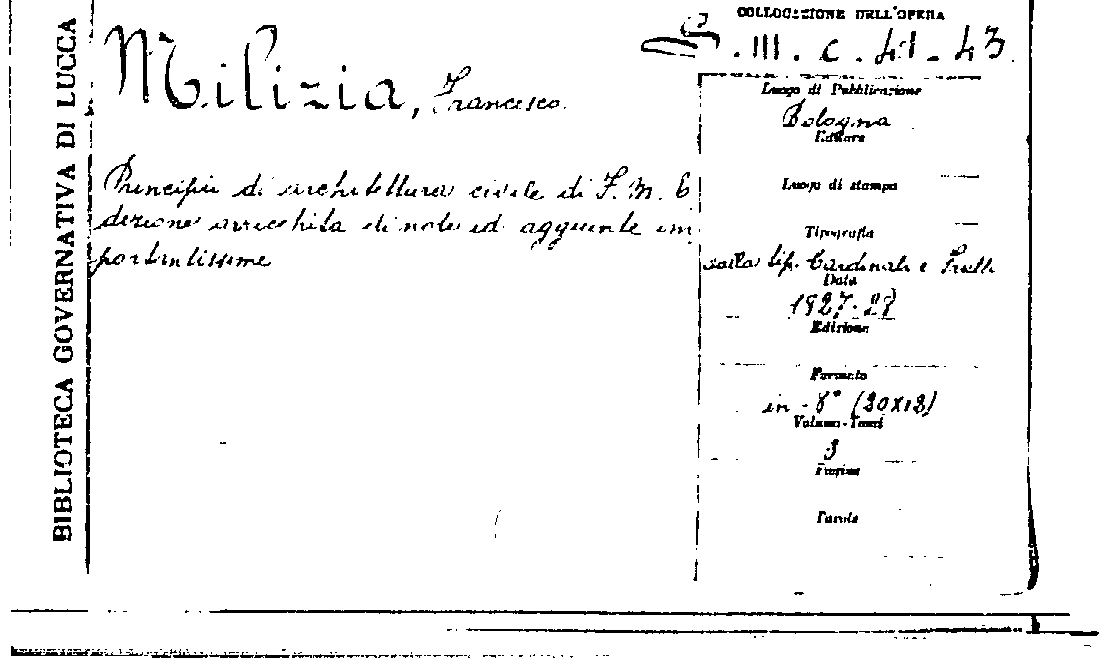 BIBLIOTECA GOVERNATIVA DI LUCCA
COLLOCAZIONE DELL'OPERA
.III.c.41-43
Milizia, Francesco.
Luogo di Pubblicazione
Bologna
Editore
Principii di architettura civile di F. M. E
dizione arricchita di note ed aggiunte im
portantissime
Luogo di stampa
Tipografia
tip. Cardinali e Frulli
Data
1827-28
Edizione
Formato
in-8° (20x13)
Volume-Tomi
3
Pagine
Tavole